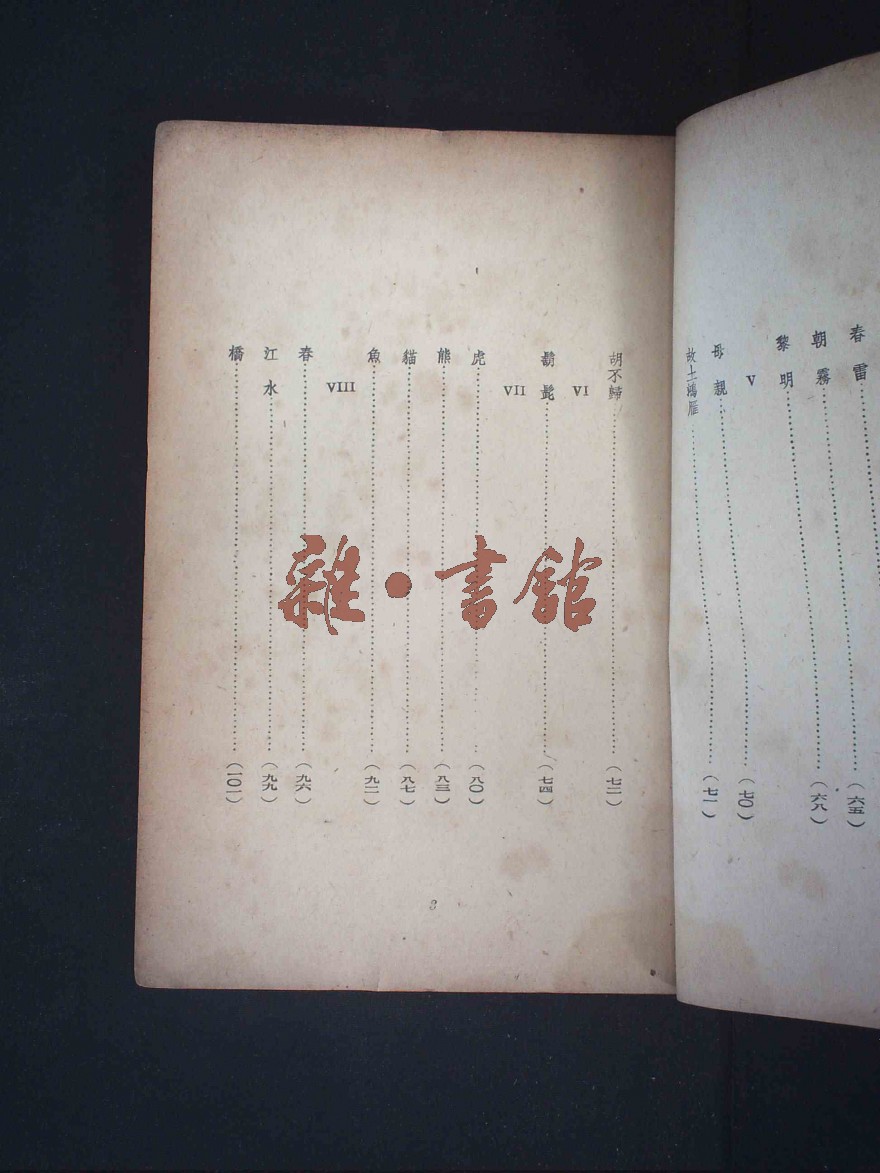 春雷
朝霧……(六五)
黎明……(六八)
V
母親……(七〇)
故土鴻雁……(七一)
胡不歸……(七二)
VI
鬍髭……(七四)
VII
虎……(八〇)
熊……(八三)
貓……(八七)
魚……(九二)
VIII
春……(九六)
江水……(九九)
橋……(一〇一)
3
雜·書館